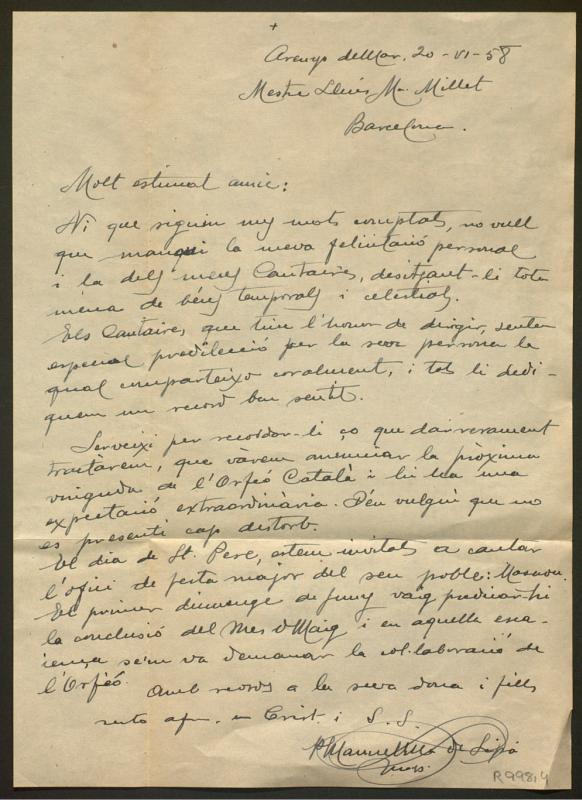 +
Arenys de Mar, 20-VI-58
Mestre Lluís Mª Millet
Barcelona.
Molt estimat amic:
Ni que siguin uny mots comptats, no vull
que manqui la meva felicitació personal
i la dels meus Cantaires, desitjant-li tota
mena de béns temporals i celestials.
Els Cantaires, que tinc l'honor de dirigir, senten
especial predilecció per la seva persona la
qual comparteixo coralment, i tots li dedi-
quem un record ben sentit.
Serveixi per recordar-li ço que darrerament
tractàrem, que vàrem anunciar la pròxima
vinguda de l'Orfeó Català i hi ha una
expectació extraordinària. Déu vulgui que no
es presenti cap destorb.
El dia de St. Pere, estem invitats a cantar
l'ofici de festa major del seu poble: Masnou.
El primer diumenge de Juny vaig predicar-hi
la conclusió del Mes d Maig i en aquella esca-
iença se'm va demanar la col·laboració de
l'Orfeó.
Amb records a la seva dona i fills
resto afm. en Crist. i S.S.
Manuel de
R998,4